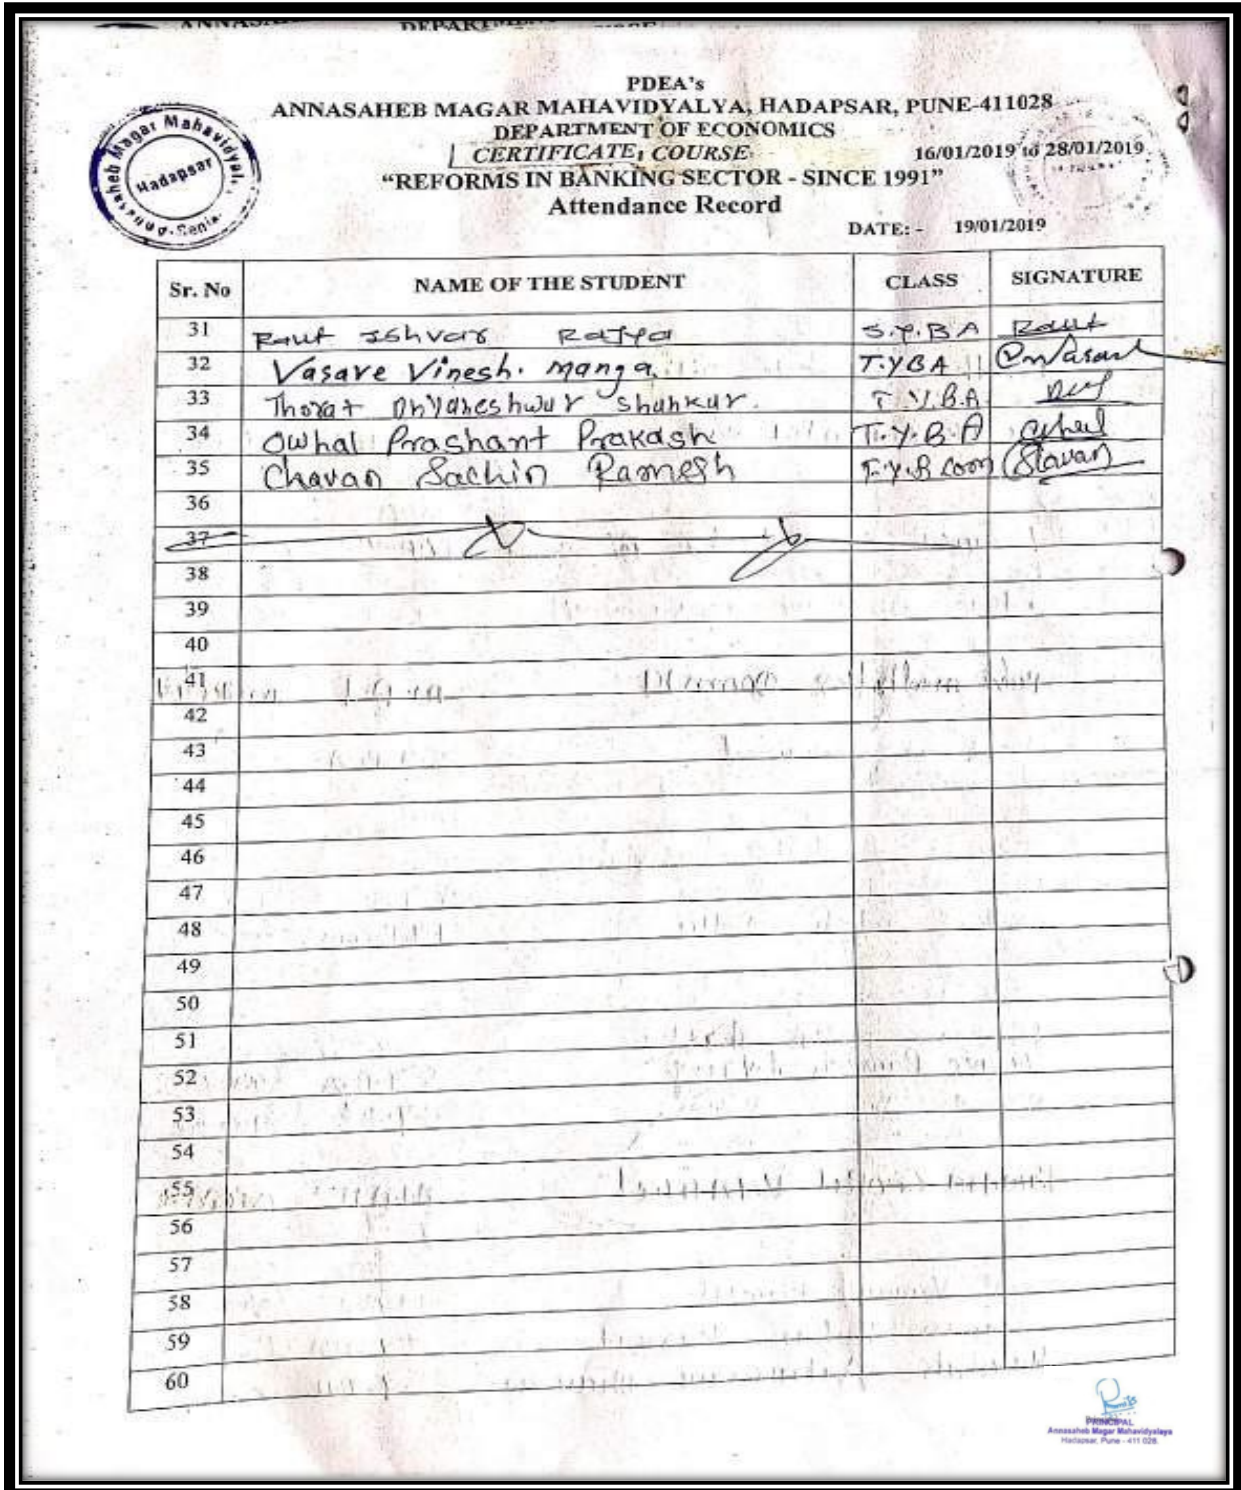 PDEA's
ANNASAHEB MAGAR MAHAVIDYALYA, HADAPSAR, PUNE-411028
DEPARTMENT OF ECONOMICS
CERTIFICATE COURSE 16/01/2019 to 28/01/2019
"REFORMS IN BANKING SECTOR - SINCE 1991"
Attendance Record
DATE: - 19/01/2019
Hadapsar
Sr. No NAME OF THE STUDENT CLASS SIGNATURE
31 Raut Ishvar Rajya S.Y.BA Raut
32 Vasave Vinesh. Manga. T.YBA
33 Thorat Dnyaneshwur Shankur. T.Y.B.A
34 Owhal Prashant Prakash T.Y.B.A
35 Chavan Sachin Ramesh F.Y.B com
36
37
38
39
40
41
42
43
44
45
46
47
48
49
50
51
52
53
54
55
56
57
58
59
60
PRINCIPAL
Annasaheb Magar Mahavidyalaya
Hadapsar, Pune - 411 028.